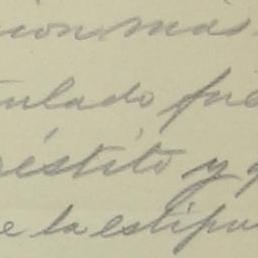 cion mas
tulado fue
réstito y q
e la estipu